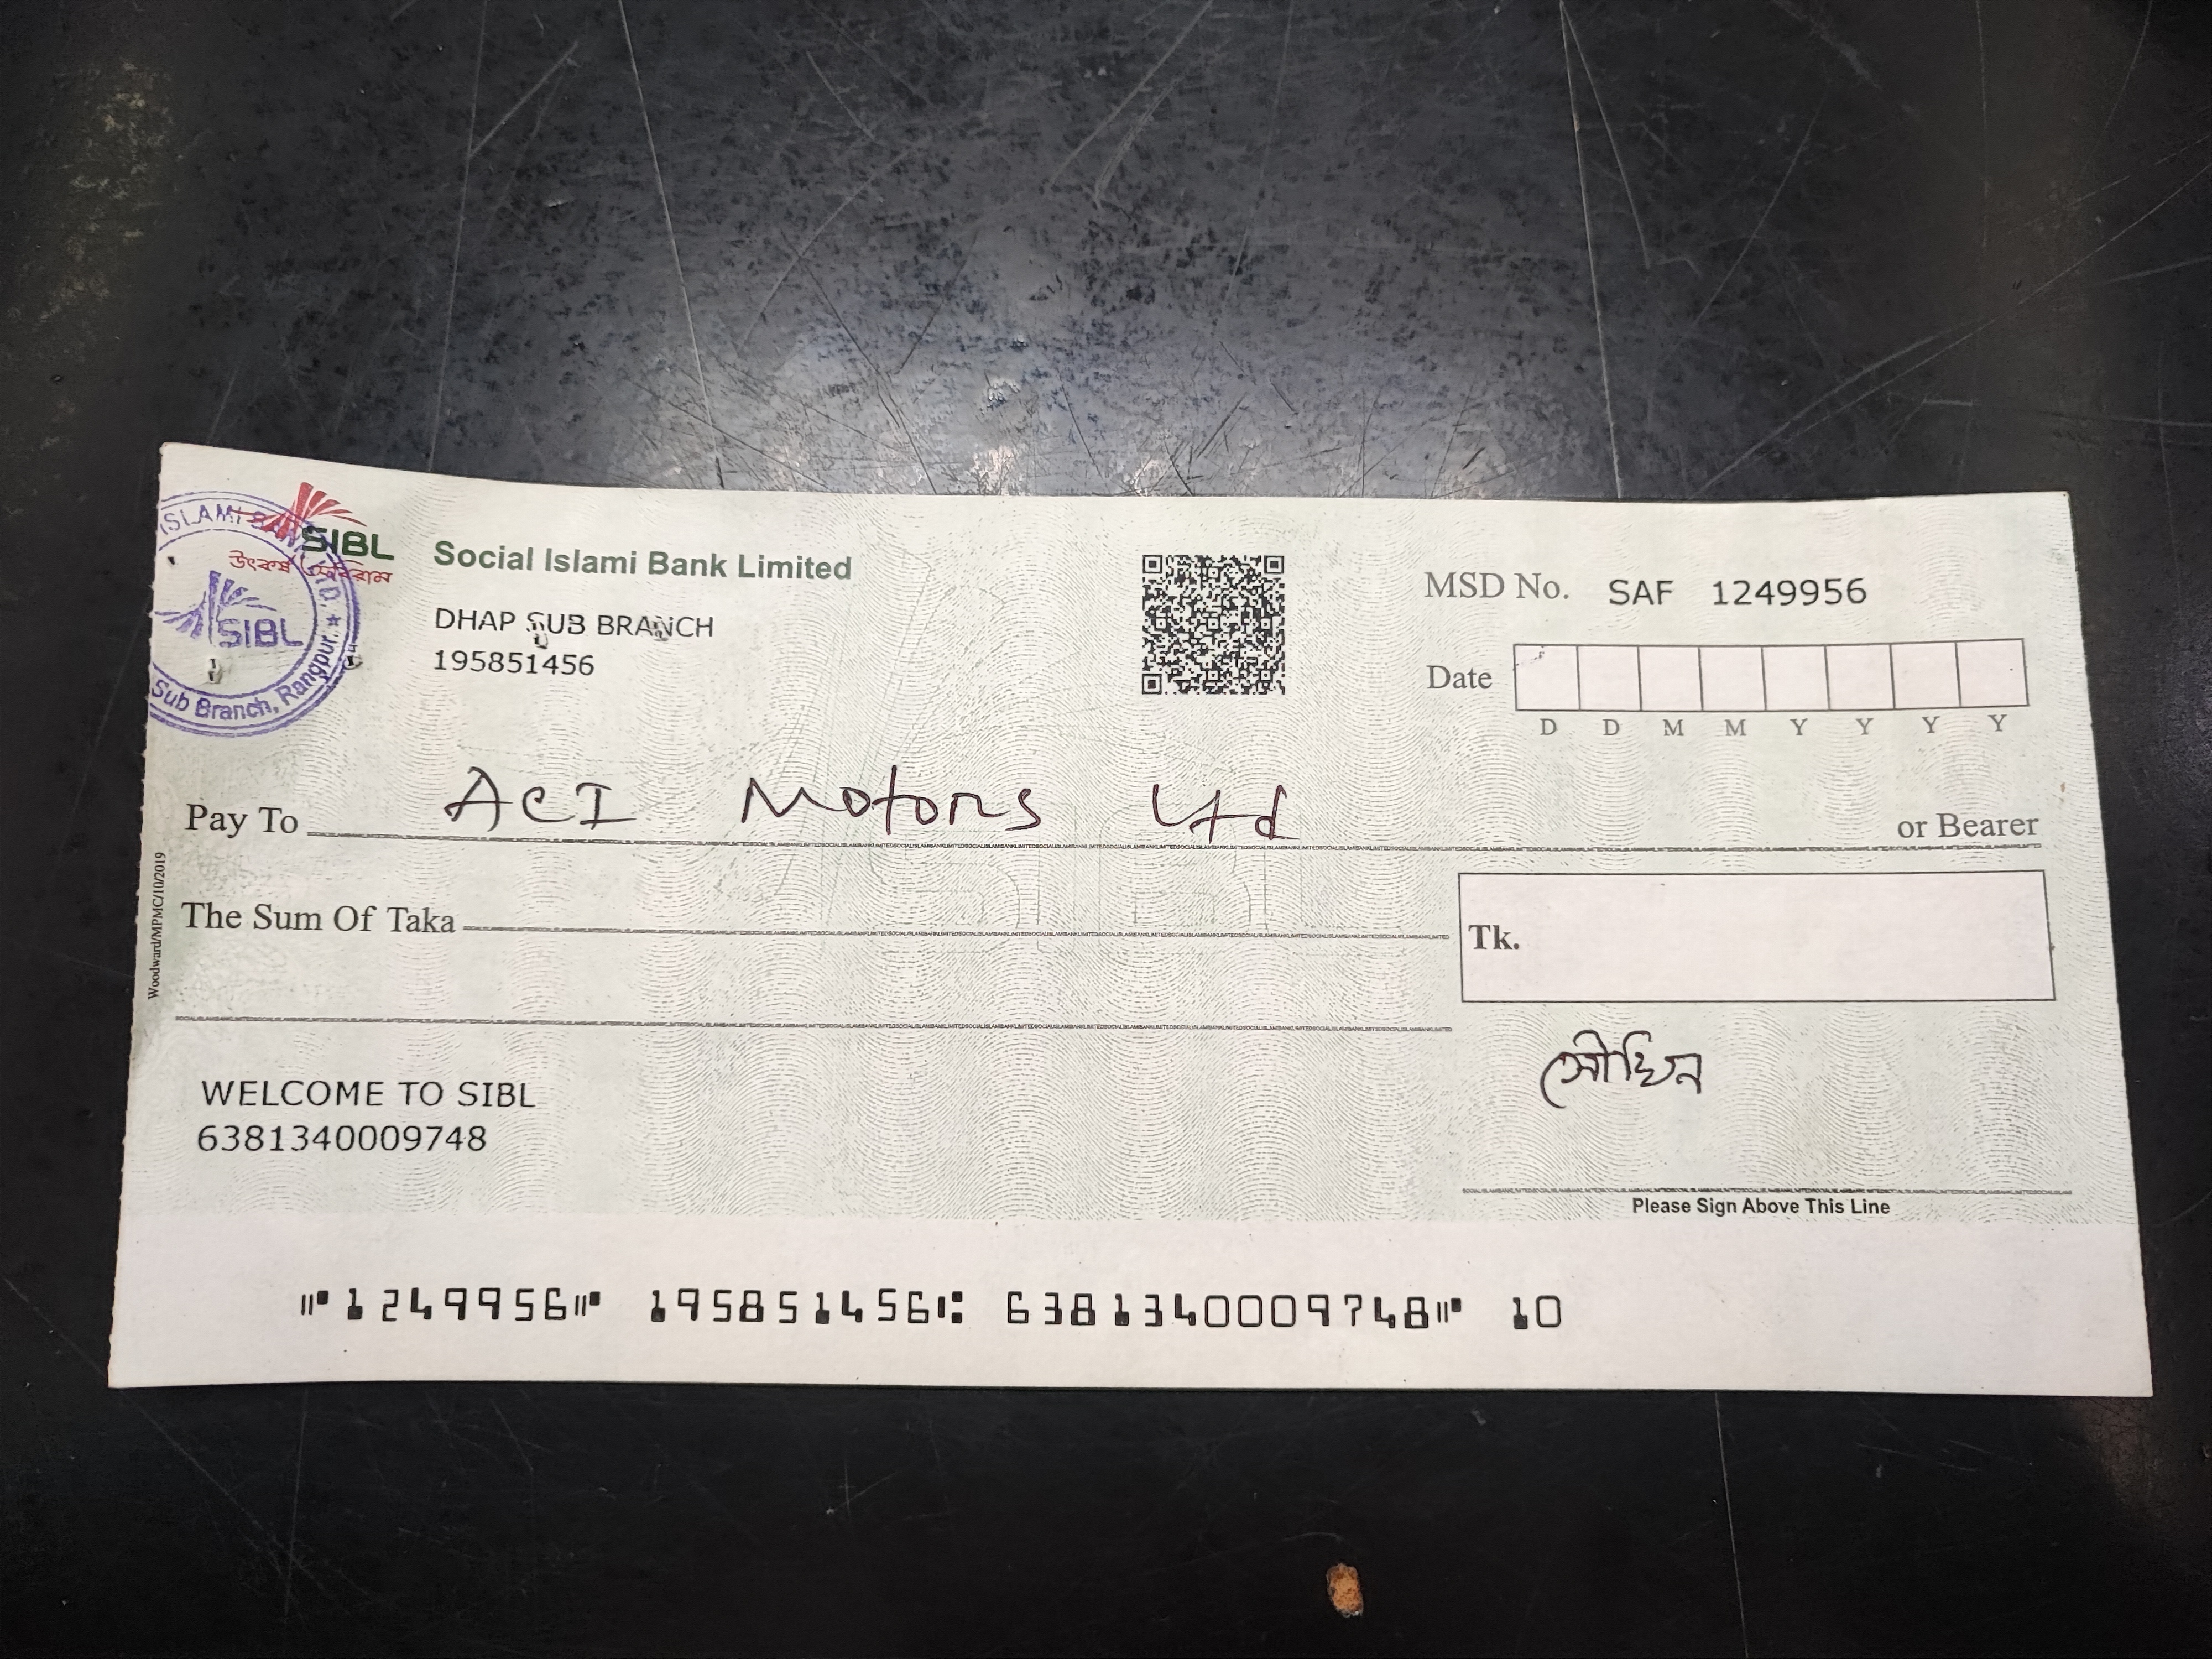 SIBL
উৎকর্ষে অবিরাম
Social Islami Bank Limited
DHAP SUB BRANCH
195851456
ISLAMI BANK LTD. ★
SIBL
Sub Branch, Rangpur.
MSD No. SAF 1249956
Date
D D M M Y Y Y Y
Pay To ACI Motors Ltd or Bearer
The Sum Of Taka
Tk.
Woodward/MPMC/10/2019
WELCOME TO SIBL
6381340009748
সৌখিন
Please Sign Above This Line
⑈1249956⑈ 195851456⑆ 6381340009748⑈ 10